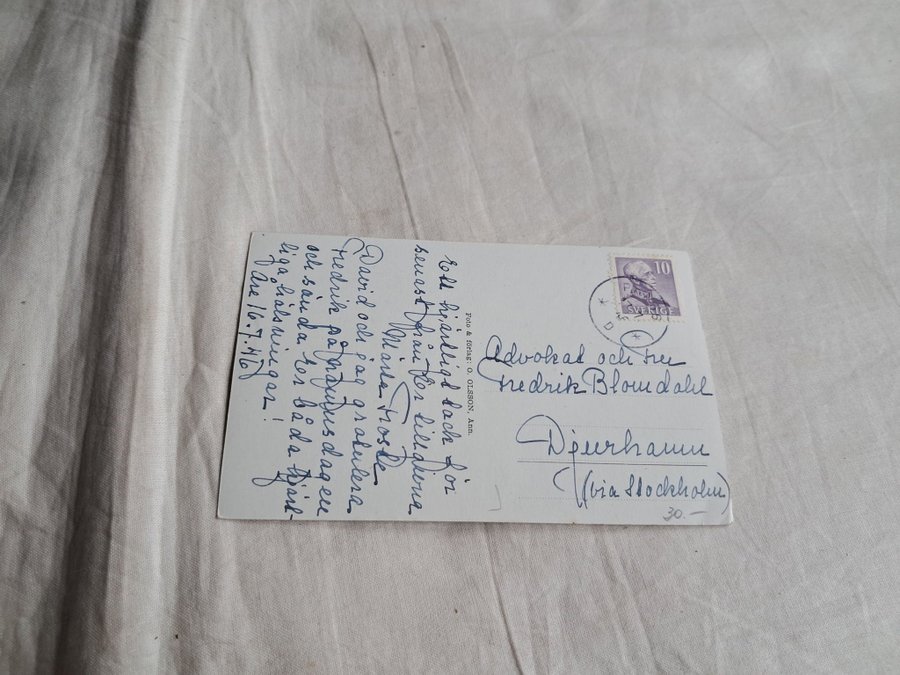 Ett hjärtligt tack för
senast från Er tillgivna
Märta
David och jag gratulera
Fredrik på namnsdagen
och sända Er båda hjärt-
liga hälsningar!
Åre 16.7.46
Foto & förlag: O. OLSSON, Ann.
10
SVERIGE
Advokat och Fru
Fredrik Blomdahl
Djurhamn
(via Stockholm)
30.—